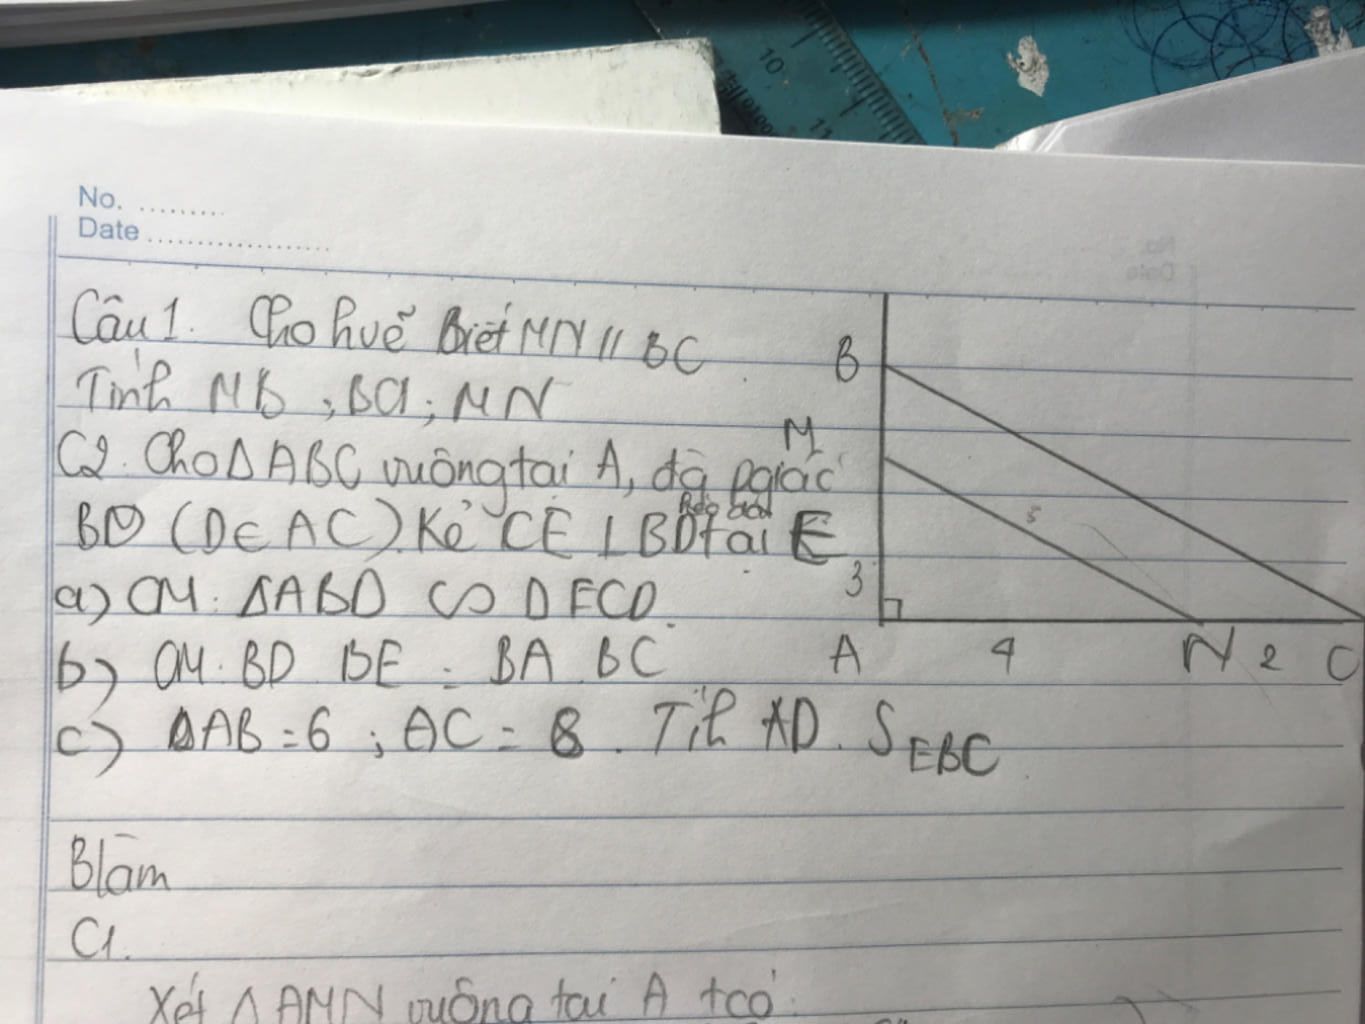 No. ........
Date ...................
Câu 1. Cho hvẽ Biết MN // BC
Tính MB ; BC ; MN
C2. Cho Δ ABC vuông tại A, đg pgiác
BD (D ∈ AC). Kẻ CE ⊥ BD tại E
a) CM: ΔABD ∽ Δ ECD.
b) CM. BD BE = BA BC
c) AB = 6 ; AC = 8. Tíh AD. S EBC
B
M
3
5
A 4 N 2 C
Blàm
C1.
Xét Δ AMN vuông tại A tcó:
10
11